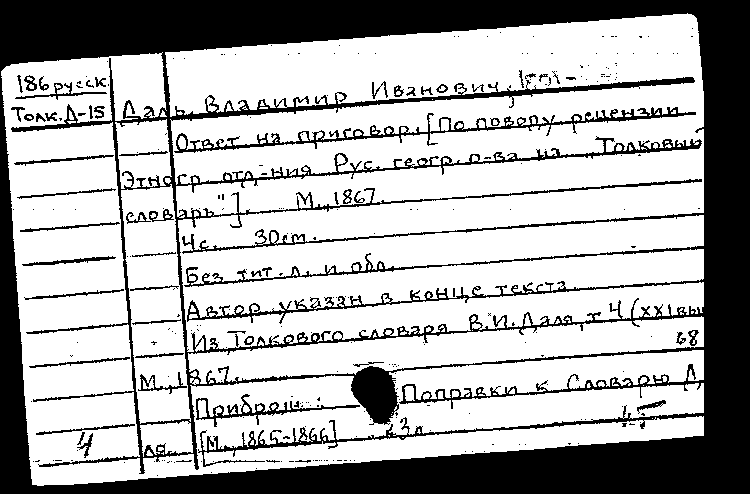 186 русск
Толк. Д-15 Даль, Владимир Иванович, 1801-
Ответ на приговор. [По поводу рецензии
Этногр. отд-ния Рус. геогр. о-ва на „Толковый
словарь"]. М., 1867.
4с. 30см.
Без тит. л. и обл.
Автор указан в конце текста.
Из „Толкового словаря В.И. Даля, т 4 (XXI вып
68
М., 1867.
Приброш.: Поправки к Словарю Д,
4 [М., 1865-1866] 3л. 45